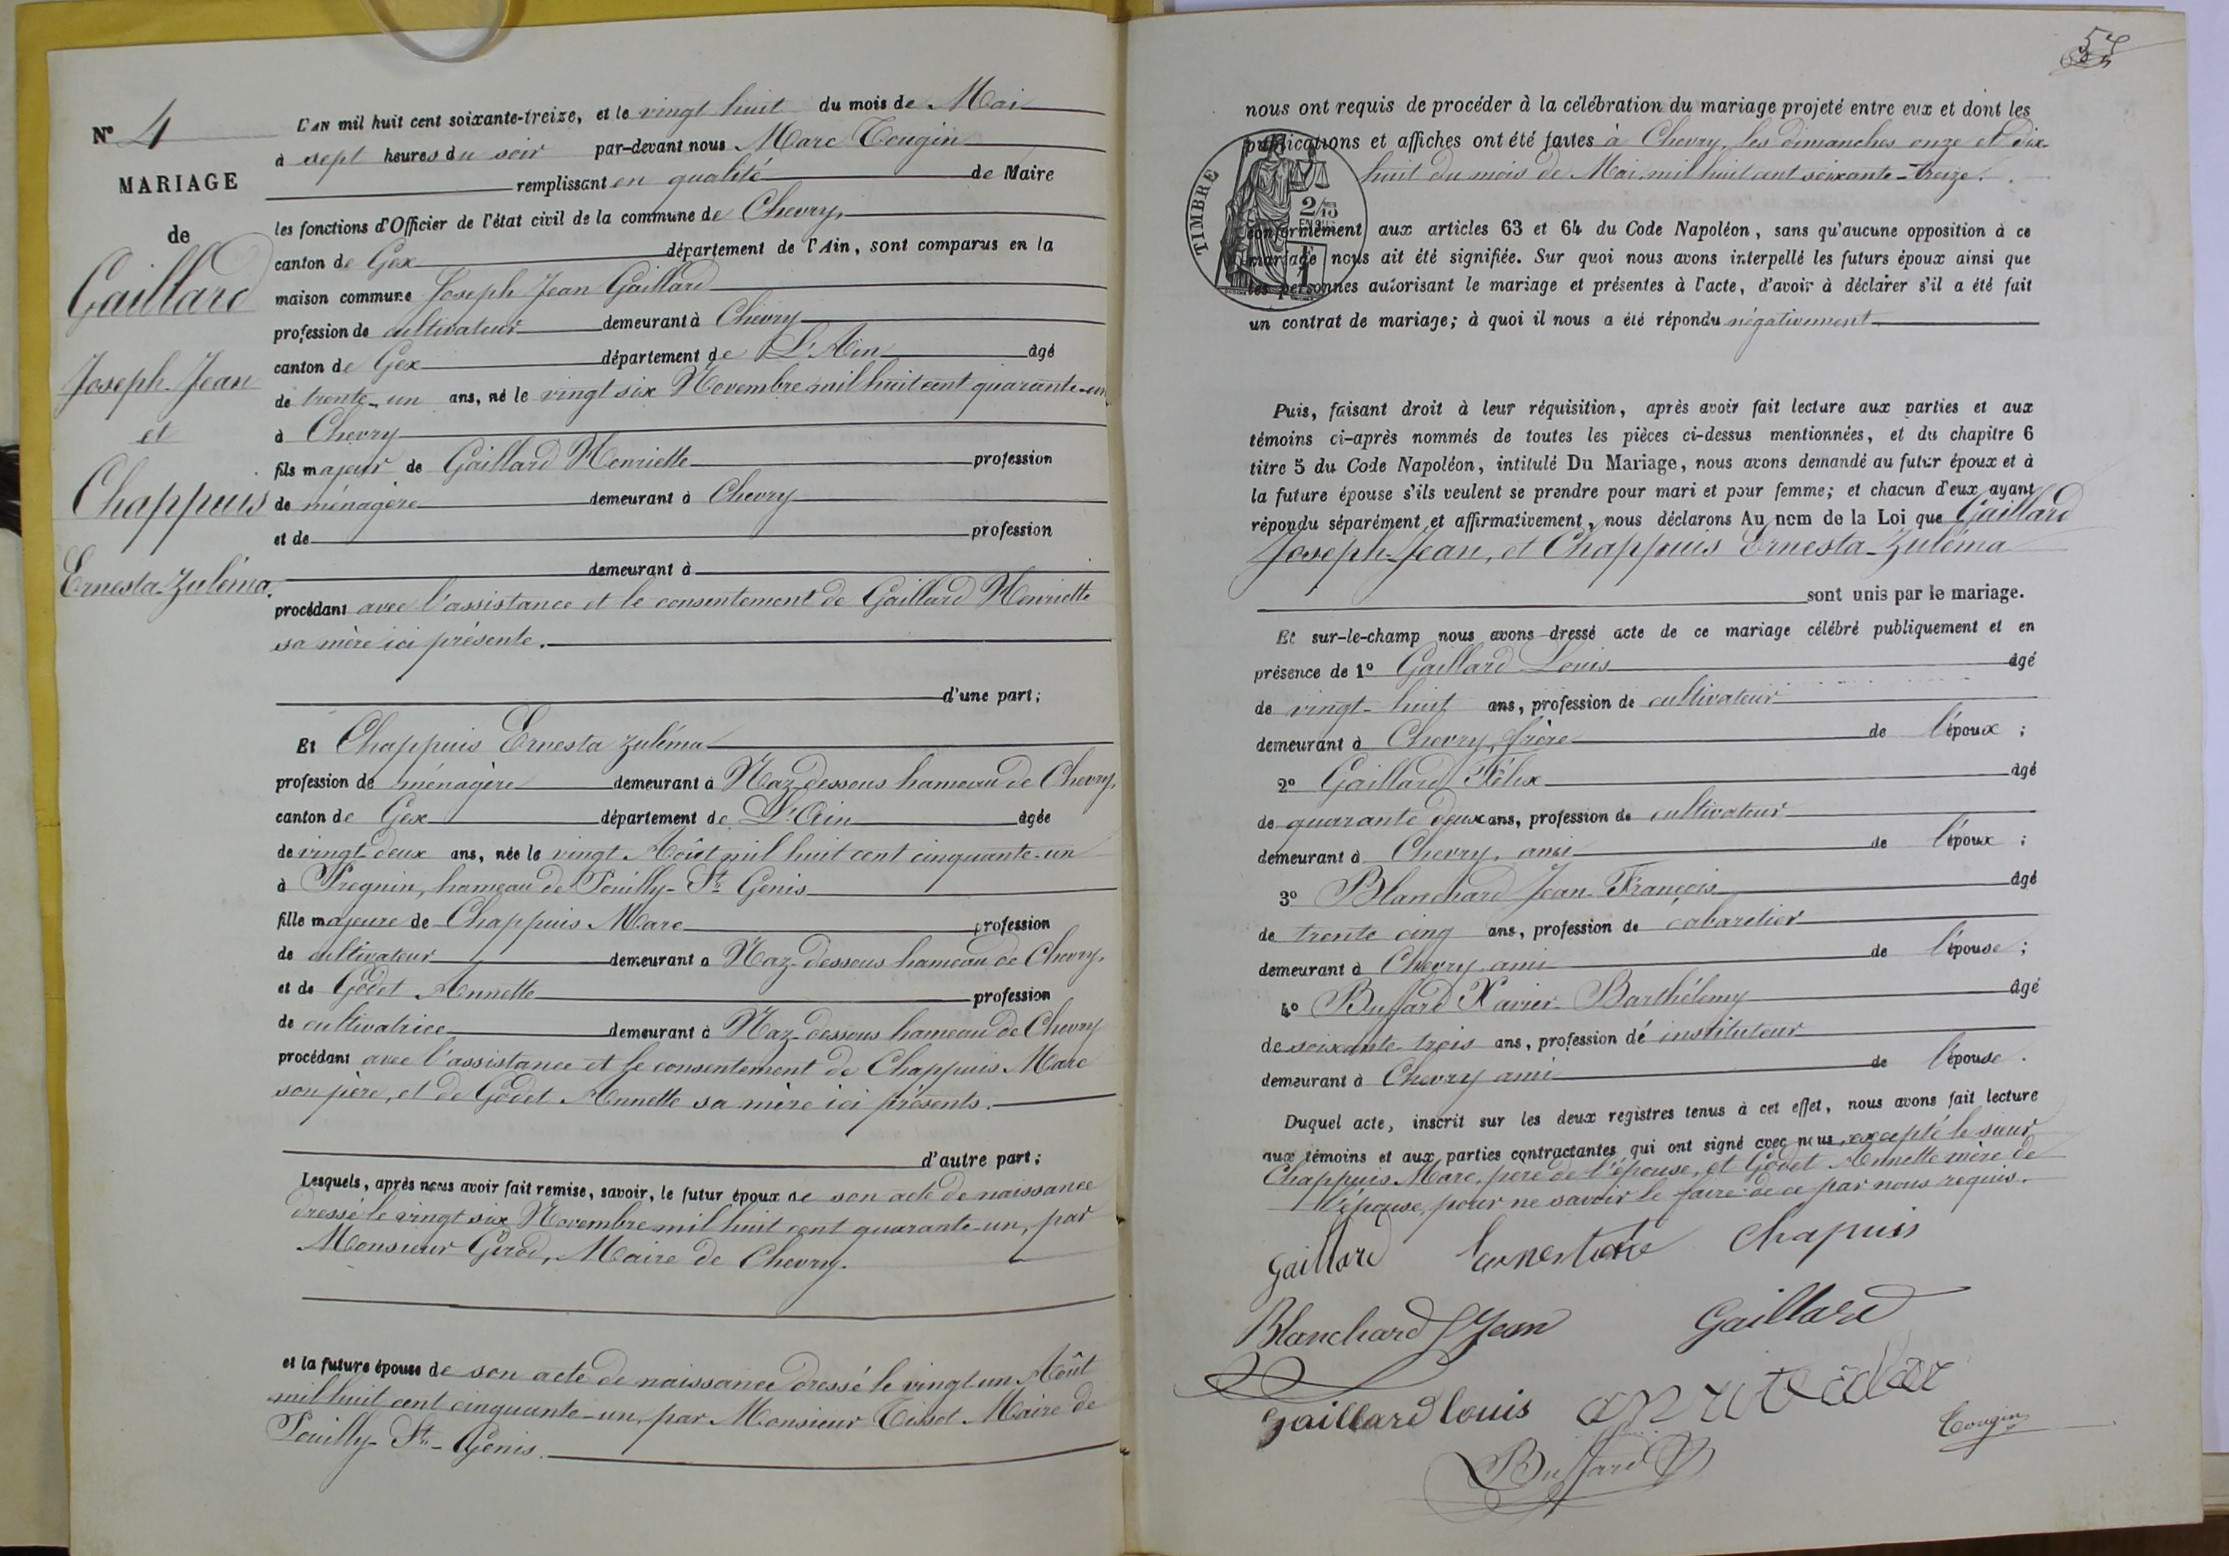 N° 4
MARIAGE
de
Gaillard
Joseph Jean
et
Chappuis
Ernesta Zuléma.
L'AN mil huit cent soixante-treize, et le vingt huit du mois de Mai
à sept heures du soir par-devant nous Marc Tougin
remplissant en qualité de Maire
les fonctions d'Officier de l'état civil de la commune de Chevry,
canton de Gex département de l'Ain, sont comparus en la
maison commune Joseph Jean Gaillard
profession de cultivateur demeurant à Chevry
canton de Gex département de L'Ain âgé
de trente-un ans, né le vingt six Novembre mil huit cent quarante-un
à Chevry
fils majeur de Gaillard Henriette profession
de ménagère demeurant à Chevry
et de profession
demeurant à
procédant avec l'assistance et le consentement de Gaillard Henriette
sa mère ici présente.
d'une part;
Et Chappuis Ernesta Zuléma
profession de ménagère demeurant à Naz-dessous hameau de Chevry,
canton de Gex département de L'Ain âgée
de vingt-deux ans, née le vingt Août mil huit cent cinquante-un
à Pregnin, hameau de Pouilly-St Genis
fille majeure de Chappuis Marc profession
de cultivateur demeurant à Naz-dessous hameau de Chevry,
et de Godet Annette profession
de cultivatrice demeurant à Naz-dessous hameau de Chevry
procédant avec l'assistance et le consentement de Chappuis Marc
son père, et de Godet Annette sa mère ici présents.
d'autre part;
Lesquels, après nous avoir fait remise, savoir, le futur époux de son acte de naissance
dressé le vingt six Novembre mil huit cent quarante-un, par
Monsieur Girod, Maire de Chevry.
et la future épouse de son acte de naissance dressé le vingt un Août
mil huit cent cinquante-un, par Monsieur Tissot Maire de
Pouilly-St-Genis.
nous ont requis de procéder à la célébration du mariage projeté entre eux et dont les
publications et affiches ont été faites à Chevry, les dimanches onze et dix-
huit du mois de Mai, mil huit cent soixante-treize.
TIMBRE
2/10
EN SUS
conformément aux articles 63 et 64 du Code Napoléon, sans qu'aucune opposition à ce
mariage nous ait été signifiée. Sur quoi nous avons interpellé les futurs époux ainsi que
les personnes autorisant le mariage et présentes à l'acte, d'avoir à déclarer s'il a été fait
un contrat de mariage; à quoi il nous a été répondu négativement
Puis, faisant droit à leur réquisition, après avoir fait lecture aux parties et aux
témoins ci-après nommés de toutes les pièces ci-dessus mentionnées, et du chapitre 6
titre 5 du Code Napoléon, intitulé Du Mariage, nous avons demandé au futur époux et à
la future épouse s'ils veulent se prendre pour mari et pour femme; et chacun d'eux ayant
répondu séparément et affirmativement, nous déclarons Au nom de la Loi que Gaillard
Joseph-Jean, et Chappuis Ernesta-Zuléma
sont unis par le mariage.
Et sur-le-champ nous avons dressé acte de ce mariage célébré publiquement et en
présence de 1° Gaillard Louis âgé
de vingt-huit ans, profession de cultivateur
demeurant à Chevry, frère de l'époux ;
2° Gaillard Félix âgé
de quarante deux ans, profession de cultivateur
demeurant à Chevry, ami de l'époux ;
3° Blanchard Jean-François âgé
de trente cinq ans, profession de cabaretier
demeurant à Chevry ami de l'épouse ;
4° Buffard Xavier-Barthélemy âgé
de soixante-trois ans, profession de instituteur
demeurant à Chevry ami de l'épouse.
Duquel acte, inscrit sur les deux registres tenus à cet effet, nous avons fait lecture
aux témoins et aux parties contractantes qui ont signé avec nous, excepté le sieur
Chappuis Marc, père de l'épouse, et Godet Annette mère de
l'épouse, pour ne savoir le faire de ce par nous requis.
Gaillard Chapuis
Blanchard Jean Gaillard
Gaillard louis
Tougin
Buffard